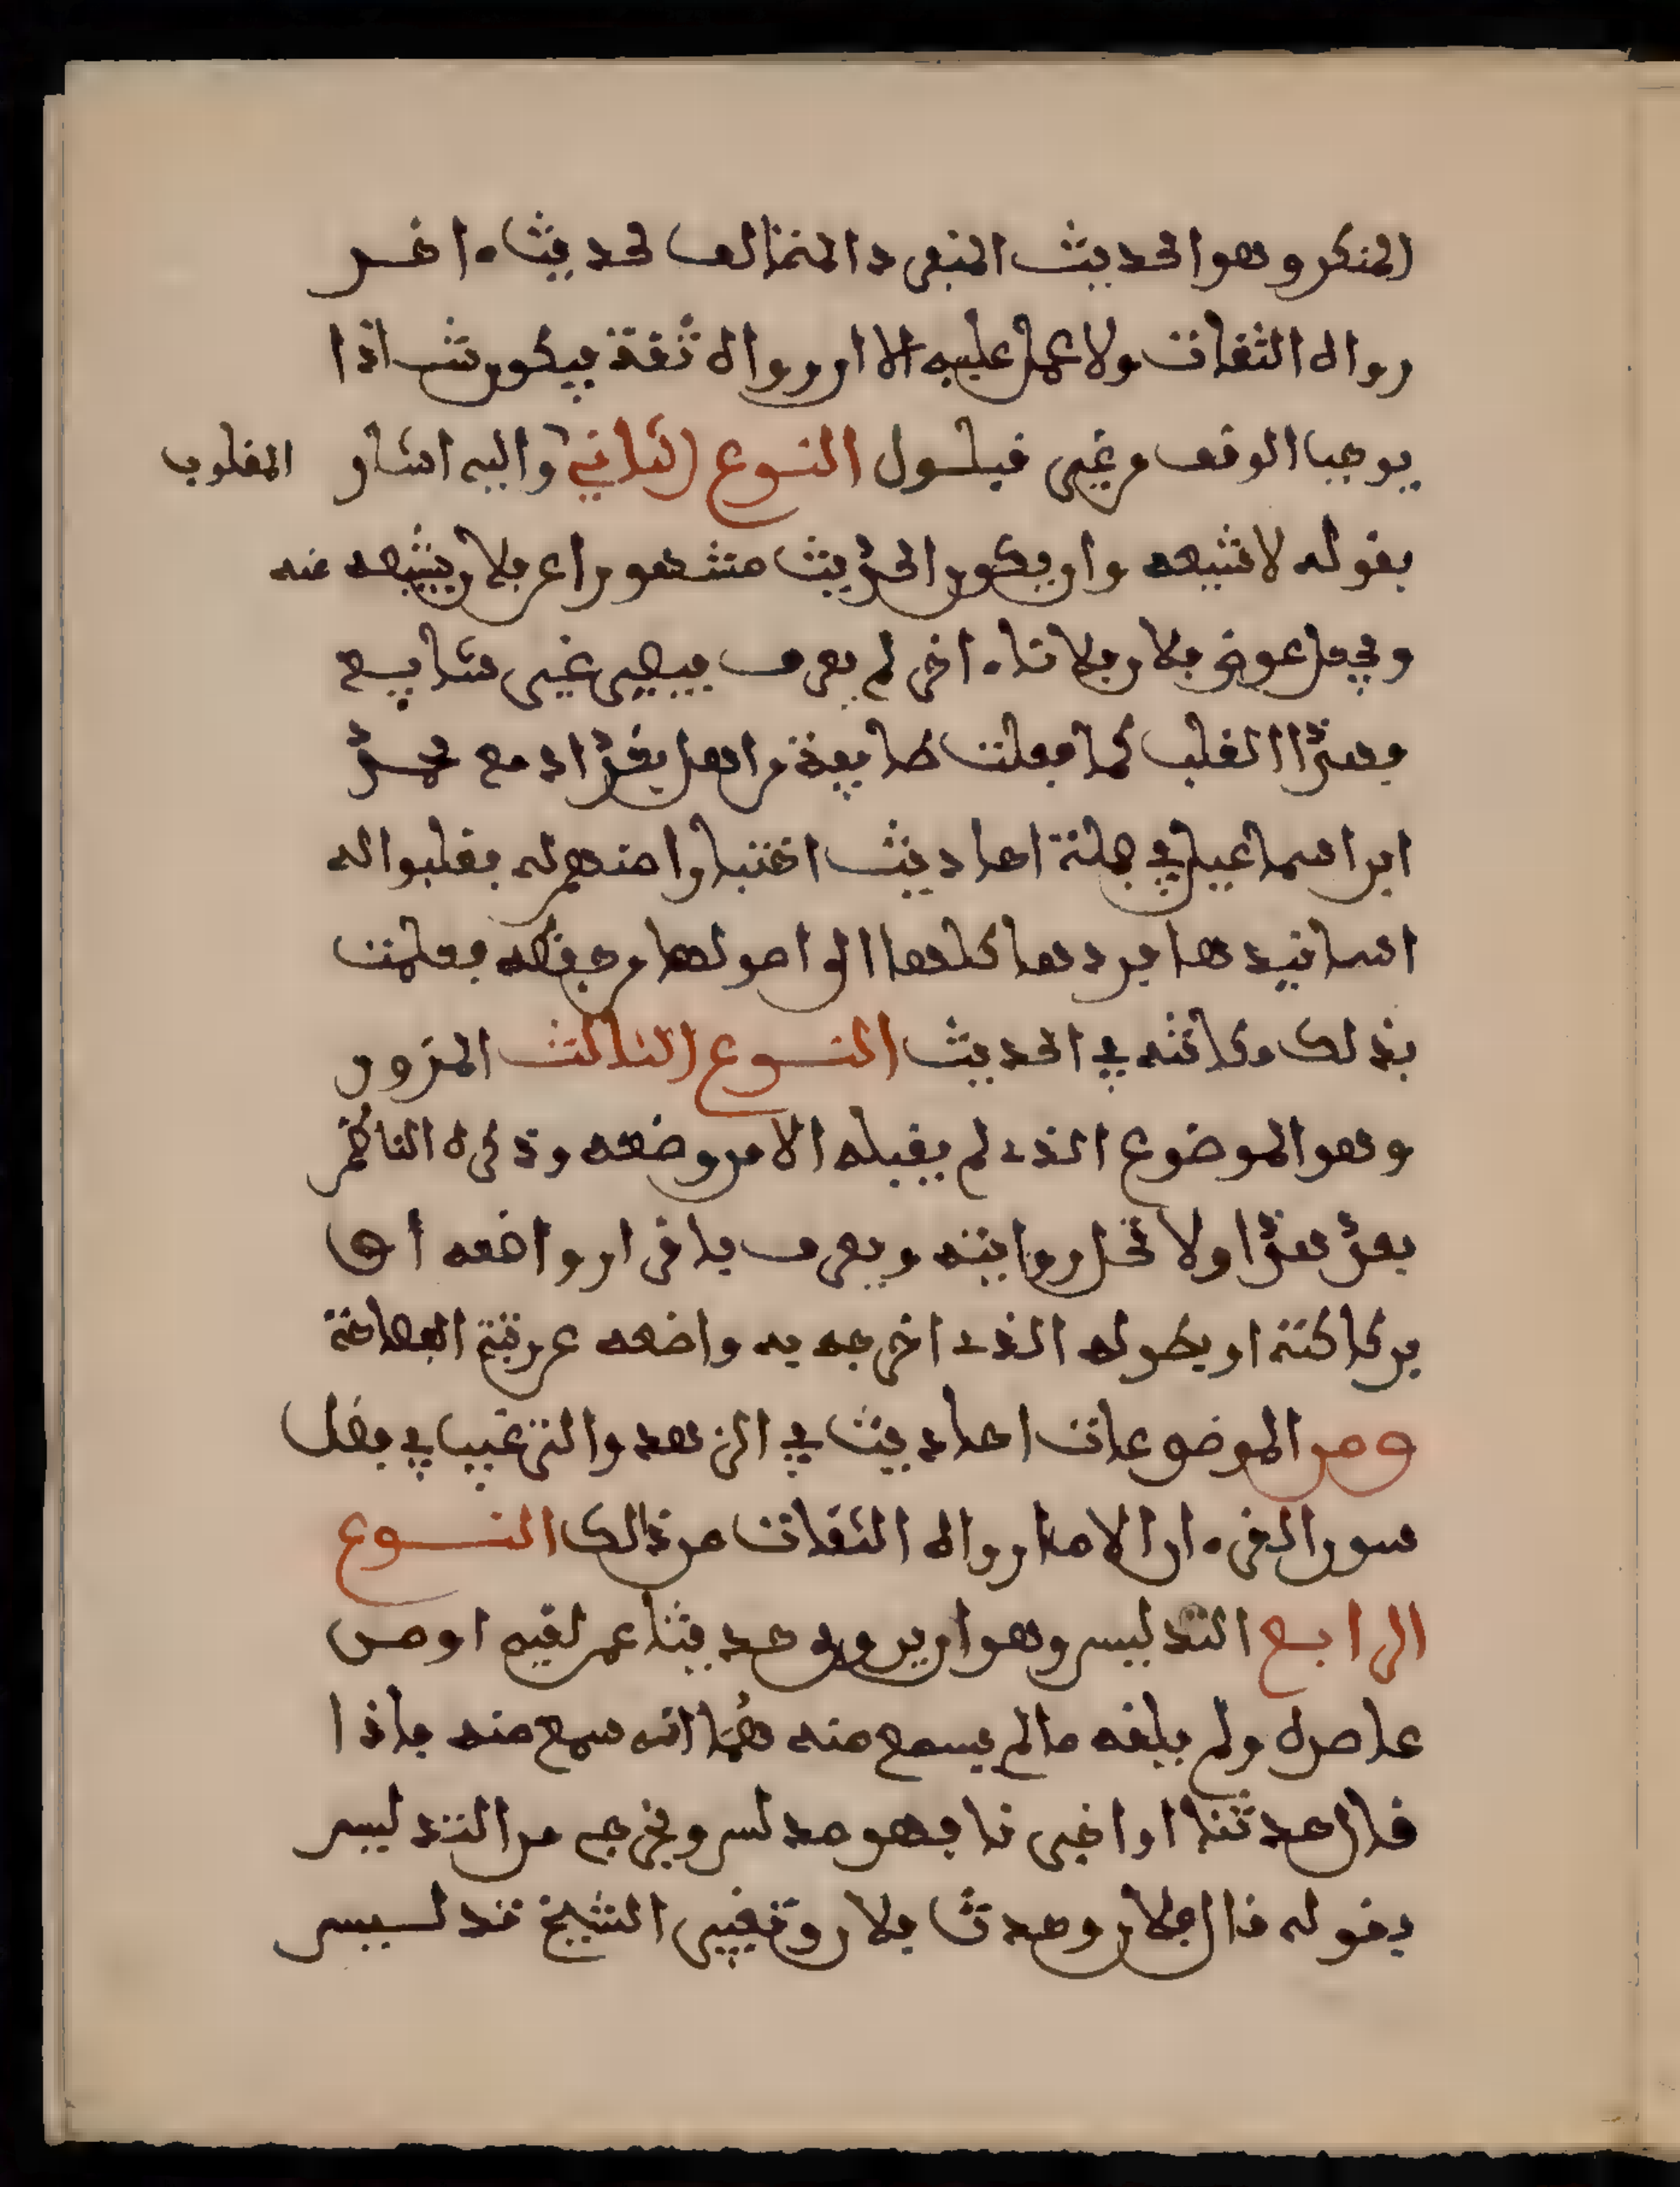 المنكر وهو الحديث المنفرد المخالف لحديث اخر
رواه الثقات ولا عمل عليه الا ان رواه ثقة فيكون شاذا
يوجب الوقف من غير قبول النوع الثاني واليه اشار المقلوب
بقوله لا تشبعه وان يكون الحديث مشهورا عن فلان يشبعه عنه
ويجعل عوض فلان فلانا اخر لم يعرف فيصير غير شايع
فهذا القلب كما فعلت طايفة من اهل بغداد مع محمد
ابن اسماعيل في جملة احاديث اختبارا منهم له فقلبوا له
اسانيدها فردها كلها الى اصولها من حفظه فعلمت
بذلك مكانته في الحديث النوع الثالث المزور
وهو الموضوع الذي لم يقبله الا من وضعه وذكره الناظم
بعد هذا ولا تحل روايته ويعرف باقرار واضعه او
بركاكته او بطوله الذي اخرجه به واضعه عن رتبة الفصاحة
ومن الموضوعات احاديث في الزهد والترغيب في فضل
سور القرءان الا ما رواه الثقات من ذالك النوع
الرابع التدليس وهو ان يروي حديثا عمن لقيه او من
عاصره ولم يلقه ما لم يسمع منه موهما انه سمع منه فاذا
قال حدثنا او اخبرنا فهو مدلس ويخرج من التدليس
بقوله قال فلان وحدث فلان وتغيير الشيخ تدليس